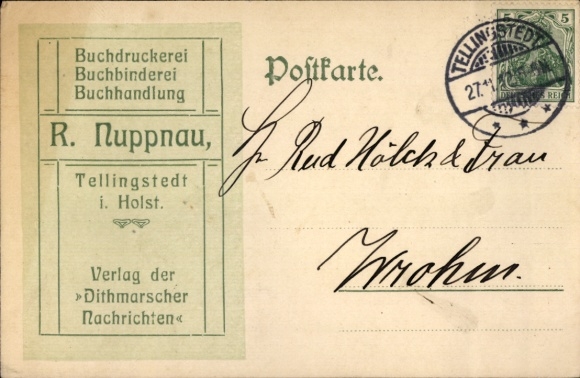 Buchdruckerei
Buchbinderei
Buchhandlung
R. Nuppnau,
Tellingstedt
i. Holst.
Verlag der
»Dithmarscher
Nachrichten«
Postkarte.
5 5
DEUTSCHES REICH
TELLINGSTEDT
27.11.
Hölck & Frau
Wrohm.